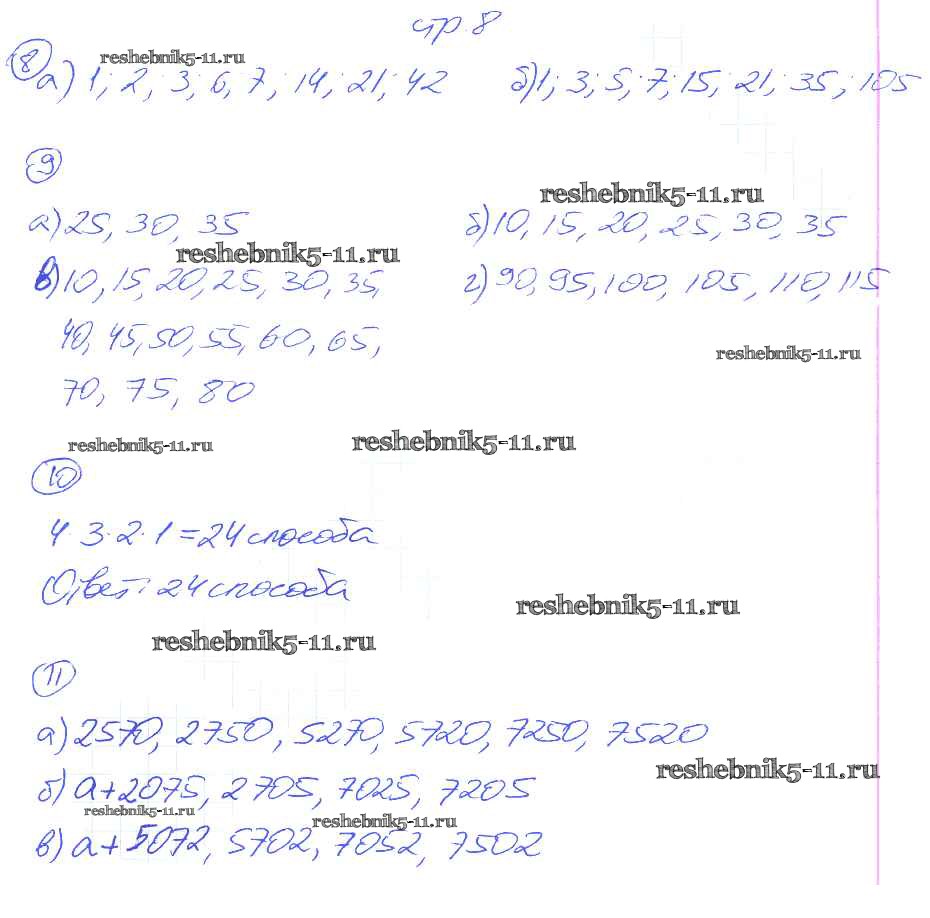 стр 8
reshebnik5-11.ru
8
а) 1; 2; 3; 6; 7; 14; 21; 42 б) 1; 3; 5; 7; 15; 21; 35; 105
9
reshebnik5-11.ru
а) 25, 30, 35 б) 10, 15, 20, 25, 30, 35
reshebnik5-11.ru
в) 10, 15, 20, 25, 30, 35, г) 90, 95, 100, 105, 110, 115
40, 45, 50, 55, 60, 65,
reshebnik5-11.ru
70, 75, 80
reshebnik5-11.ru reshebnik5-11.ru
10
4·3·2·1=24 способа
Ответ: 24 способа
reshebnik5-11.ru
reshebnik5-11.ru
11
а) 2570, 2750, 5270, 5720, 7250, 7520
reshebnik5-11.ru
б) а+2075, 2705, 7025, 7205
reshebnik5-11.ru reshebnik5-11.ru
в) а+5072, 5702, 7052, 7502